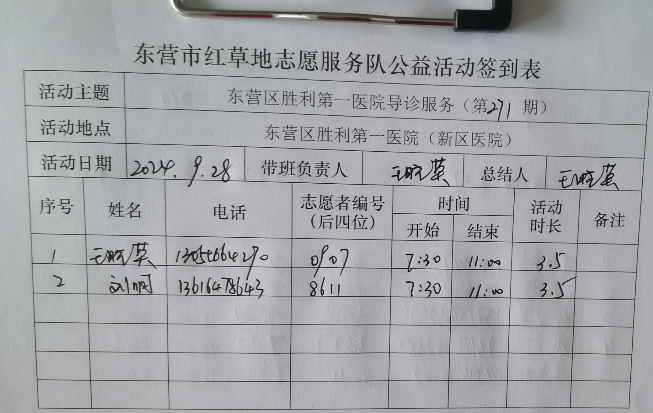 东营市红草地志愿服务队公益活动签到表
活动主题 东营区胜利第一医院导诊服务（第271期）
活动地点 东营区胜利第一医院（新区医院）
活动日期 2024.9.28 带班负责人 总结人
序号 姓名 电话 志愿者编号（后四位） 时间 开始 结束 活动时长 备注
1 0907 7:30 11:00 3.5
2 刘丽 13616478643 8611 7:30 11:00 3.5